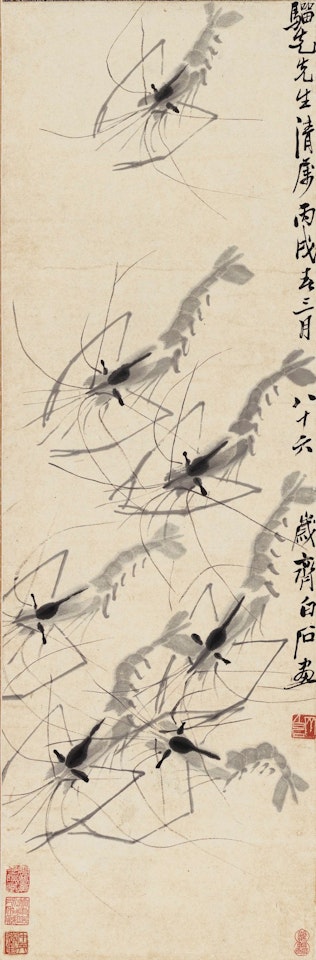 騮先先生清属丙戌春三月八十六歲齊白石畫